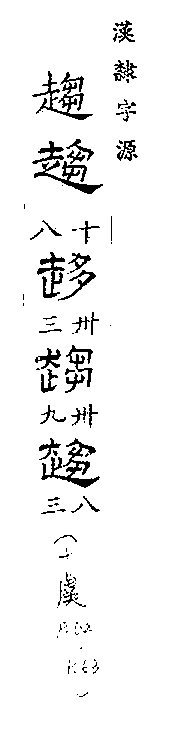 漢隸字源
趨
趨
十八
趍
卅三
趨
卅九
趨
八三
(十虞
)